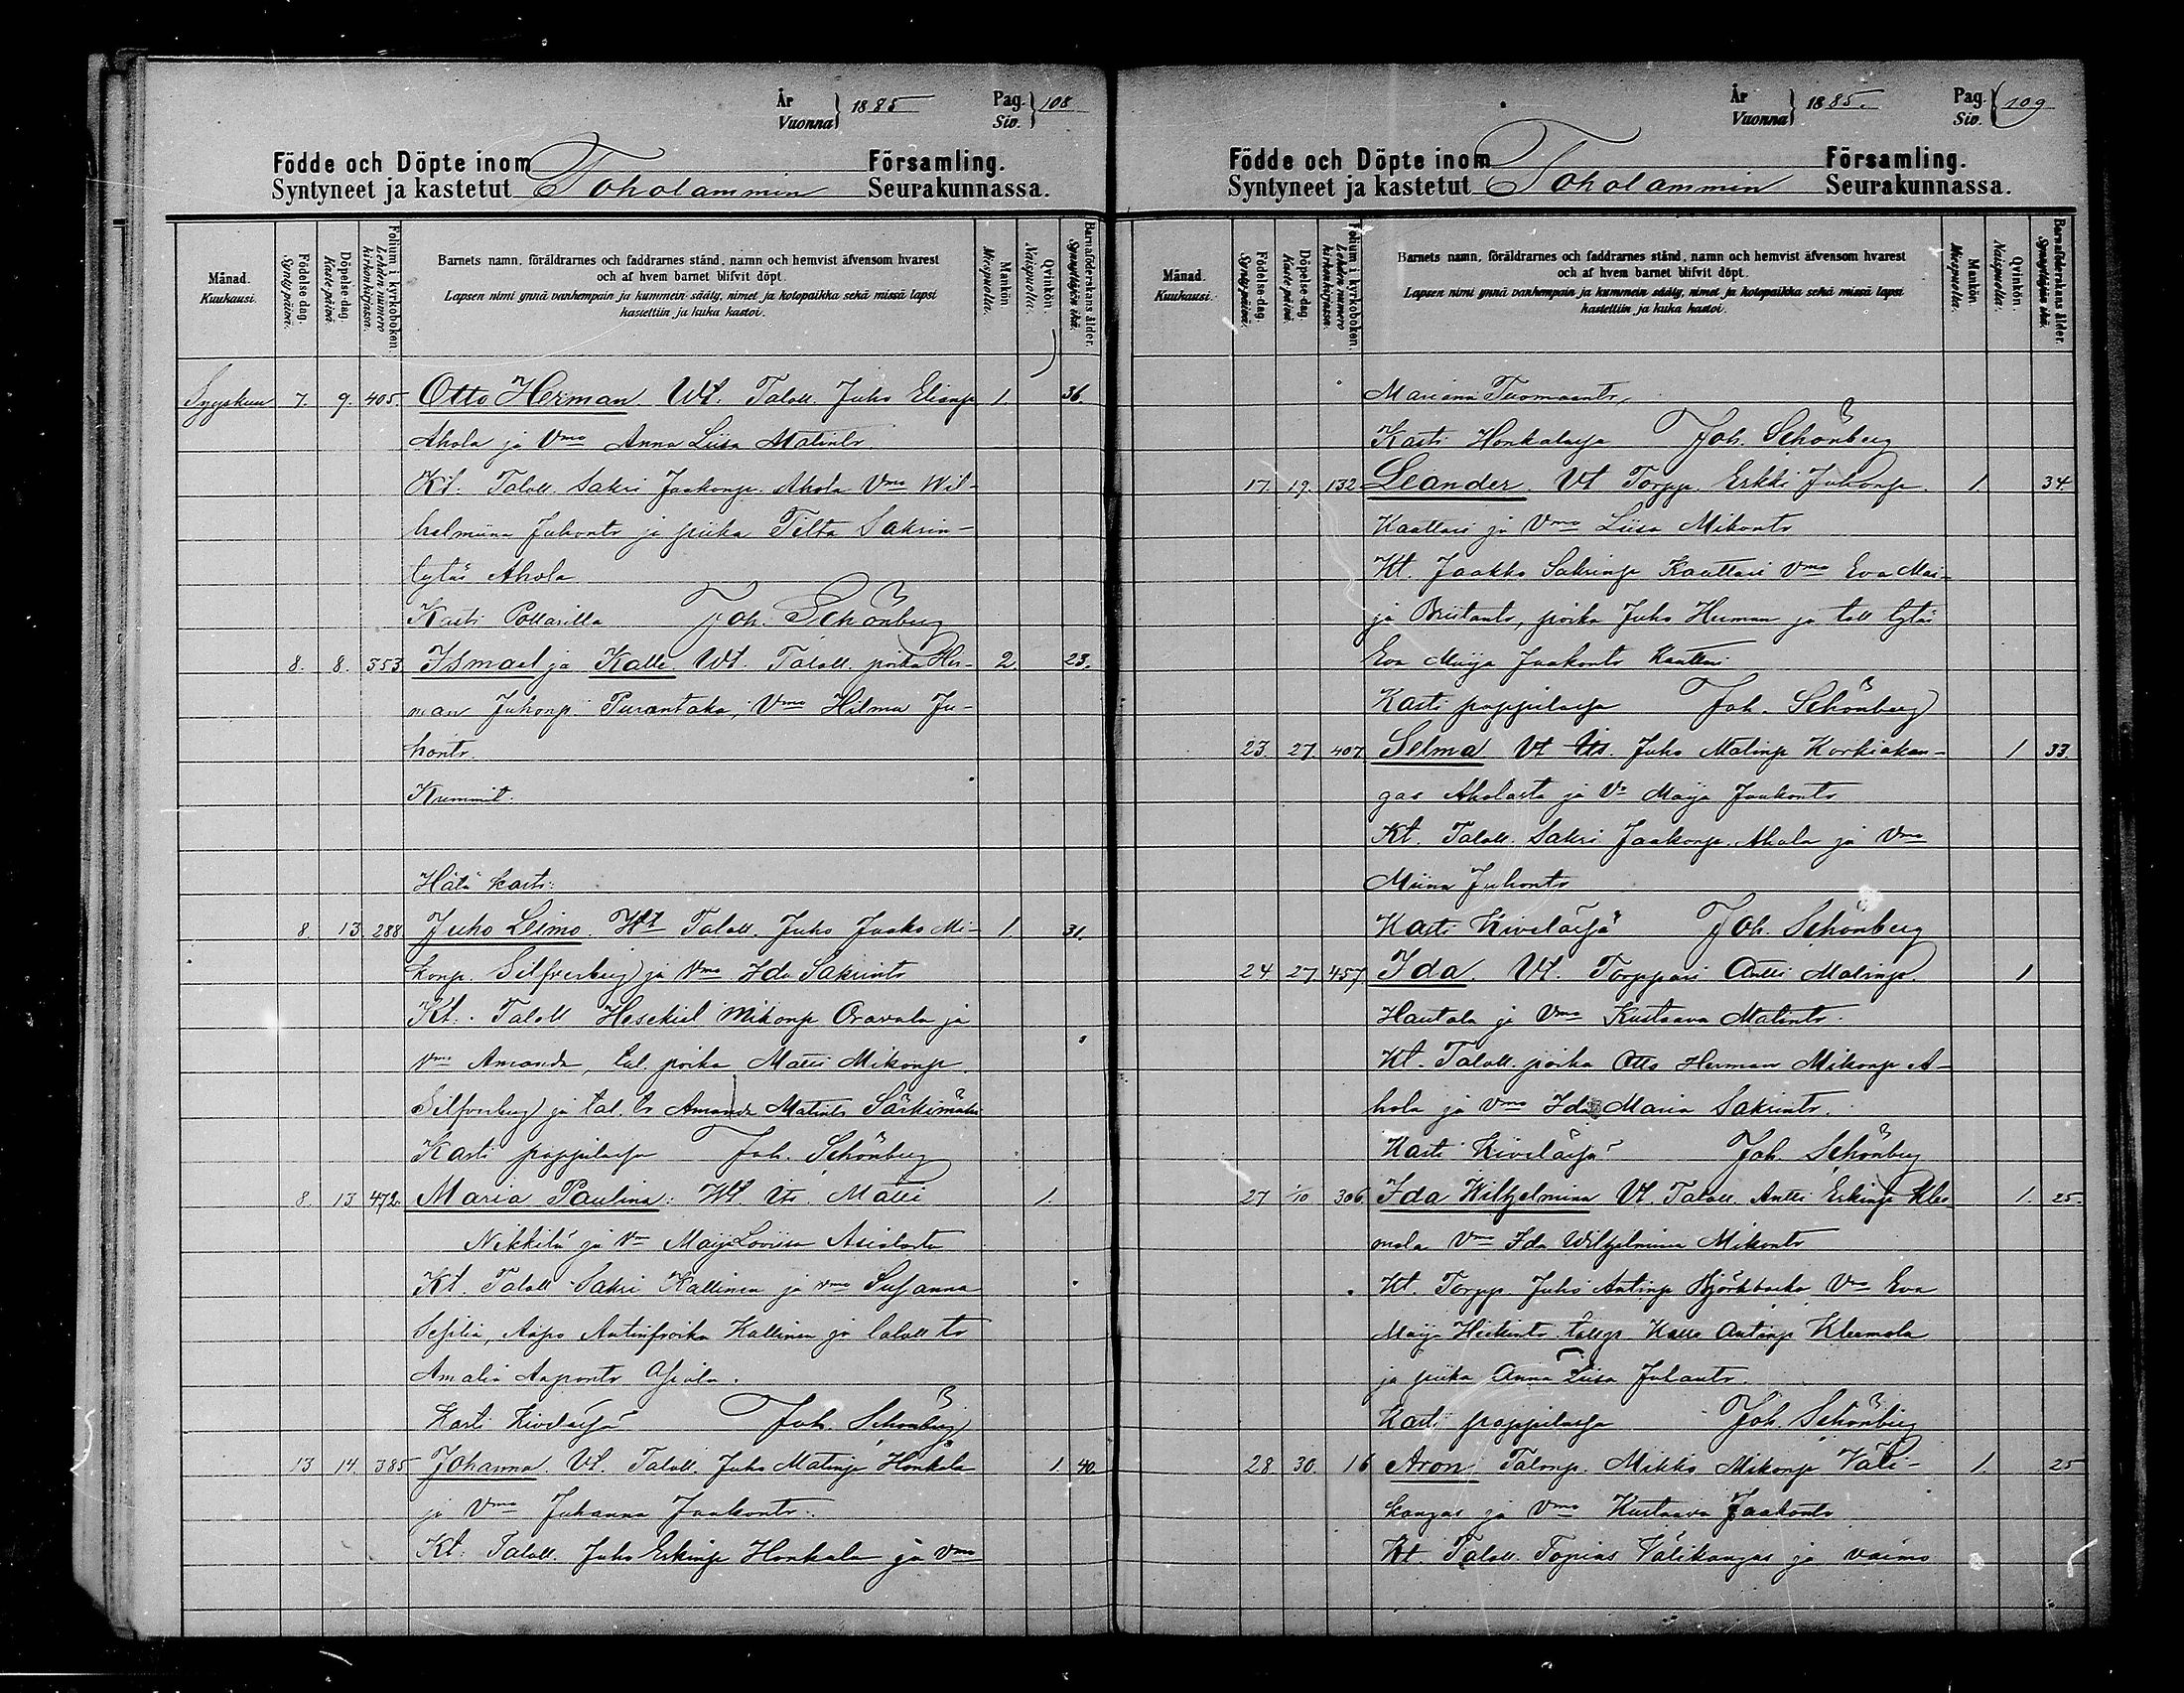 År
Vuonna } 1885
Pag.
Siv. } 108
Födde och Döpte inom Församling.
Syntyneet ja kastetut Toholammin Seurakunnassa.
Månad.
Kuukausi.
Födelse-dag.
Synty päivä.
Döpelse-dag.
Kaste päivä
Folium i kyrkoboken.
Lehden numero kirkonkirjassa.
Barnets namn, föräldrarnes och faddrarnes stånd, namn och hemvist äfvensom hvarest
och af hvem barnet blifvit döpt.
Lapsen nimi ynnä vanhempain ja kummein sääty, nimet ja kotopaikka sekä missä lapsi
kastettiin ja kuka kastoi.
Mankön
Miespuolia.
Qvinkön.
Naispuolia.
Barnaföderskans ålder.
Synnyttäjän ikä.
Syyskuu 7. 9. 405. Otto Herman Wt. Taloll. Juho Eliasp 1. 36.
Ahola ja Vmo Anna Liisa Matintr
Kt. Taloll. Sakri Jaakonp. Ahola Vmo Wil-
helmiina Juhontr ja piika Tilta Sakrin-
tytär Ahola
Kasti Pollarilla Joh. Schönberg
8. 8. 353 Ismael ja Kalle. Wt. Taloll. poika Her- 2. 23.
man Juhonp. Purontaka, Vmo Hilma Ju-
hontr.
Kummit.
Hätä kaste:
8. 13. 288 Juho Leimo. Wt Taloll. Juho Jaako Mi- 1. 31.
konp. Silfverberg ja Vmo Ida Sakrintr
Kt. Taloll Hesekiel Mikonp Oravala ja
Vmo Amanda, tal. poika Matti Mikonp.
Silfverberg ja tal. tr Amanda Matintr Särkimäki
Kasti pappilassa Joh. Schönberg
8. 13 472. Maria Paulina: Wt. Its. Matti 1.
Nikkilä ja Vm Maija Loviisa Asialasta
Kt. Taloll Sakri Kallinen ja vmo Susanna
Sesilia, Aapo Antinpoika Kallinen ja taloll tr
Amalia Aapontr Asiala.
Kasti Kivelässä Joh. Schönberg
13 14. 385 Johanna. Vt. Taloll. Juho Matinp Honkala 1. 40.
ja Vmo Juhanna Jaakontr.
Kt. Taloll. Juho Erkinp Honkala ja Vmo
År
Vuonna } 1885.
Pag.
Siv. { 109
Födde och Döpte inom Församling.
Syntyneet ja kastetut Toholammin Seurakunnassa.
Månad.
Kuukausi.
Födelse-dag.
Synty päivä.
Döpelse-dag.
Kaste päivä.
Folium i kyrkoboken.
Lehden numero kirkonkirjassa.
Barnets namn, föräldrarnes och faddrarnes stånd, namn och hemvist äfvensom hvarest
och af hvem barnet blifvit döpt.
Lapsen nimi ynnä vanhempain ja kummein sääty, nimet ja kotopaikka sekä missä lapsi
kastettiin ja kuka kastoi.
Mankön.
Miespuolia.
Qvinkön.
Naispuolia.
Barnaföderskans ålder.
Synnyttäjän ikä.
Mariana Tuomaantr,
Kasti Honkalassa Joh. Schönberg
17. 19. 132 Leander. Vt Torpp. Erkki Juhonp. 1. 34.
Kaattari ja Vmo Liisa Mikontr
Kt. Jaakko Sakrinp Kaattari Vmo Eva Mar-
ja Briitantr, poika Juho Herman ja tall tytär
Eva Maija Jaakontr Kaattari
Kasti pappilassa Joh. Schönberg
23. 27. 407 Selma Vt Its. Juho Matinp Korkiakan- 1 33.
gas Aholasta ja Vo Maija Jaakontr
Kt. Taloll. Sakri Jaakonp. Ahola ja Vmo
Miina Juhontr
Kasti Kivelässä Joh. Schönberg
24 27 457. Ida. Vt. Torppari Antti Matinp. 1
Hautala ja Vmo Kustaava Matintr.
Kt. Taloll. poika Otto Herman Mikonp A-
hola ja Vmo Ida Maria Sakrintr.
Kasti Kivelässä Joh. Schönberg
27 1/10 306. Ida Wilhelmina Vt. Taloll. Antti Erkinp Kle- 1. 25.
mola Vmo Ida Wilhelmina Mikontr
Kt. Torpp. Juho Antinp Björkbacka Vmo Eva
Maija Heikintr tallp. Kalle Antinp Kleemola
ja piika Anna Liisa Juhantr.
Kasti pappilassa Joh. Schönberg
28 30. 16 Aron Talonp. Mikko Mikonp Väli- 1. 25
kangas ja Vmo Kustaava Jaakontr
Kt. Taloll. Topias Välikangas ja vaimo